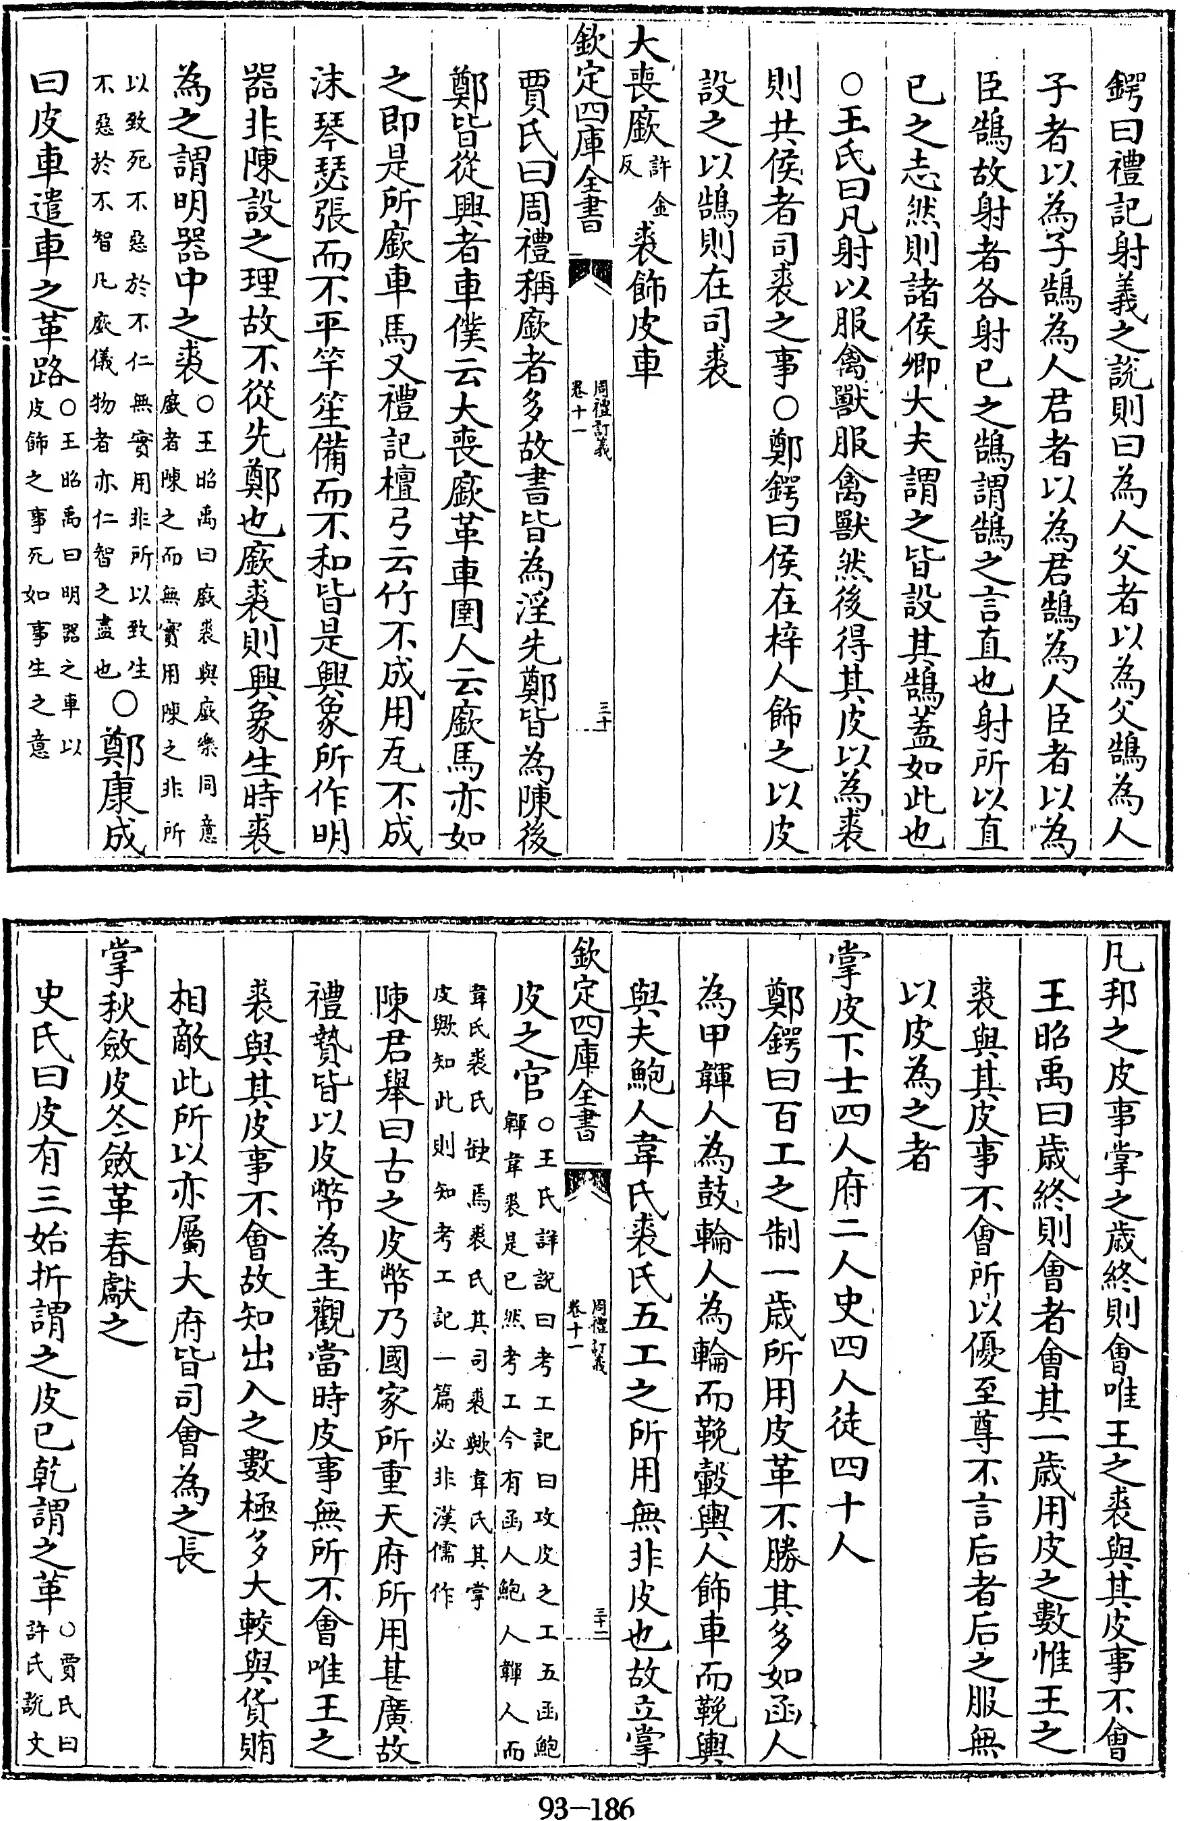 鍔曰禮記射義之説則曰為人父者以為父鵠為人
子者以為子鵠為人君者以為君鵠為人臣者以為
臣鵠故射者各射已之鵠謂鵠之言直也射所以直
已之志然則諸侯卿大夫謂之皆設其鵠蓋如此也
○王氏曰凡射以服禽獸服禽獸然後得其皮以為裘
則共侯者司裘之事○鄭鍔曰侯在梓人飾之以皮
設之以鵠則在司裘
大喪廞許金反裘飾皮車
欽定四庫全書
周禮訂義
卷十一
三十
賈氏曰周禮稱廞者多故書皆為淫先鄭皆為陳後
鄭皆從興者車僕云大喪廞革車圉人云廞馬亦如
之即是所廞車馬又禮記檀弓云竹不成用瓦不成
沬琴瑟張而不平竽笙備而不和皆是興象所作明
器非陳設之理故不從先鄭也廞裘則興象生時裘
為之謂明器中之裘○王昭禹曰廞裘與廞樂同意廞者陳之而無實用陳之非所
以致死不惡於不仁無實用非所以致生不惡於不智凡廞儀物者亦仁智之盡也○鄭康成
曰皮車遣車之革路○王昭禹曰明器之車以皮飾之事死如事生之意
凡邦之皮事掌之歳終則會唯王之裘與其皮事不會
王昭禹曰歳終則會者會其一歳用皮之數惟王之
裘與其皮事不會所以優至尊不言后者后之服無
以皮為之者
掌皮下士四人府二人史四人徒四十人
鄭鍔曰百工之制一歳所用皮革不勝其多如函人
為甲韗人為鼓輪人為輪而鞔轂輿人飾車而鞔輿
與夫鮑人韋氏裘氏五工之所用無非皮也故立掌
欽定四庫全書
周禮訂義
卷十一
三十一
皮之官○王氏詳説曰考工記曰攻皮之工五函鮑韗韋裘是已然考工今有函人鮑人韗人而
韋氏裘氏缺焉裘氏其司裘歟韋氏其掌皮歟知此則知考工記一篇必非漢儒作
陳君舉曰古之皮幣乃國家所重天府所用甚廣故
禮贄皆以皮幣為主觀當時皮事無所不會唯王之
裘與其皮事不會故知出入之數極多大較與貨賄
相敵此所以亦屬大府皆司會為之長
掌秋斂皮冬斂革春獻之
史氏曰皮有三始折謂之皮已乾謂之革○賈氏曰許氏說文
93-186